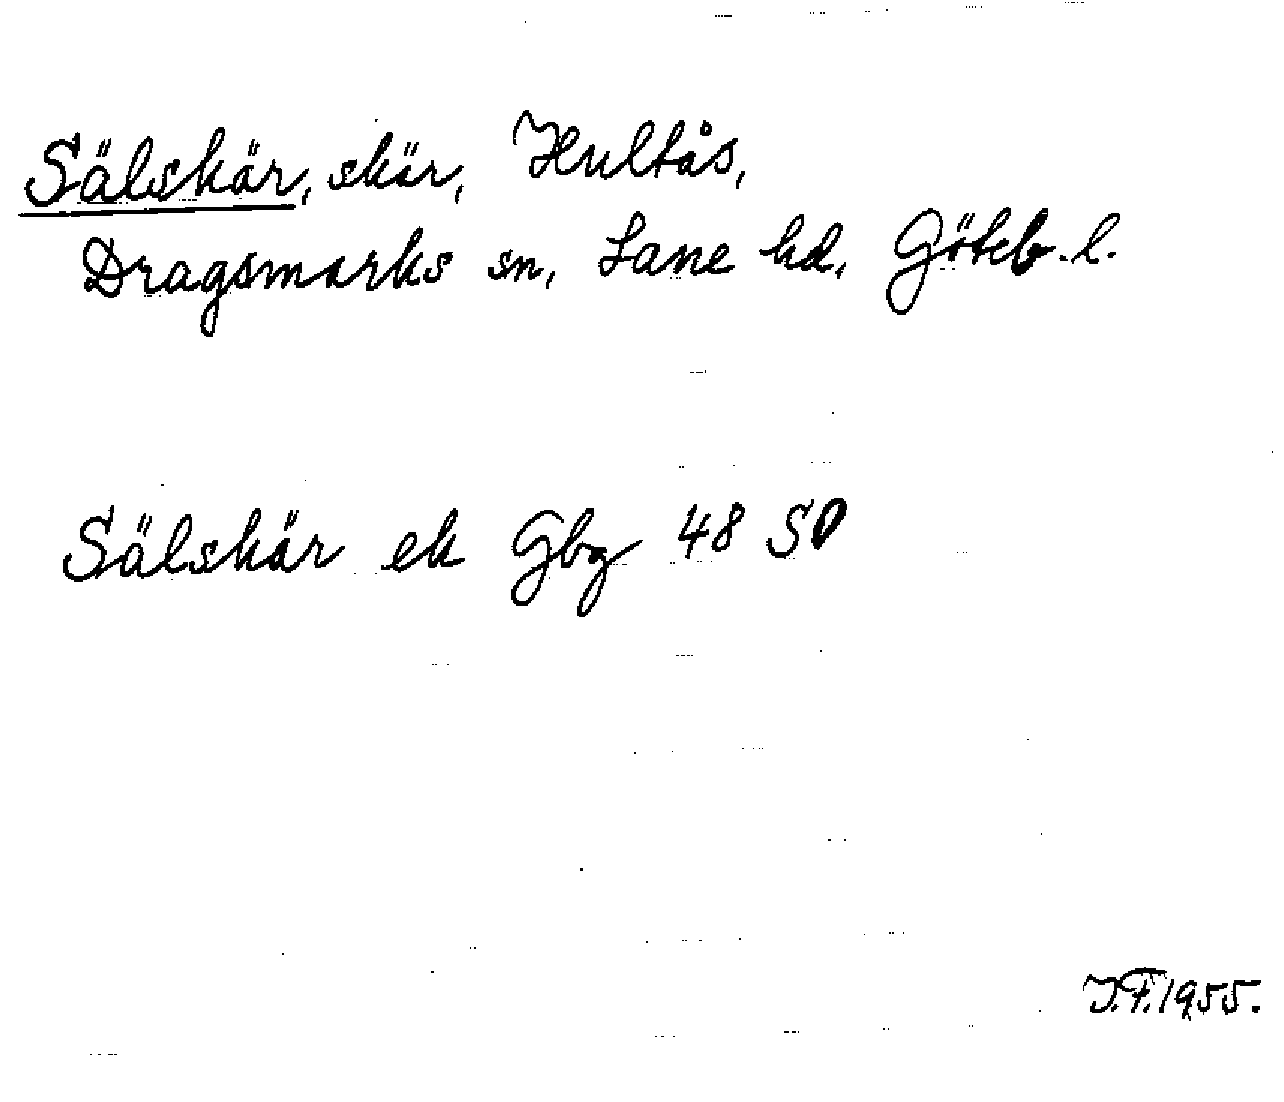 Sälskär, skär, Hultås,
Dragsmarks sn, Lane hd, Göteb. l.
Sälskär ek Gbg 48 SO
J.F. 1955.